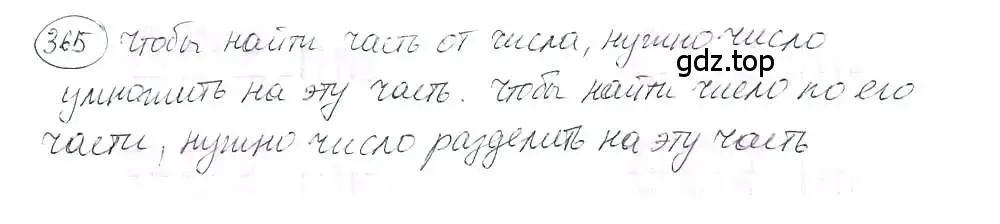 365 Чтобы найти часть от числа, нужно число
gdz.top
умножить на эту часть. Чтобы найти число по его
части, нужно число разделить на эту часть